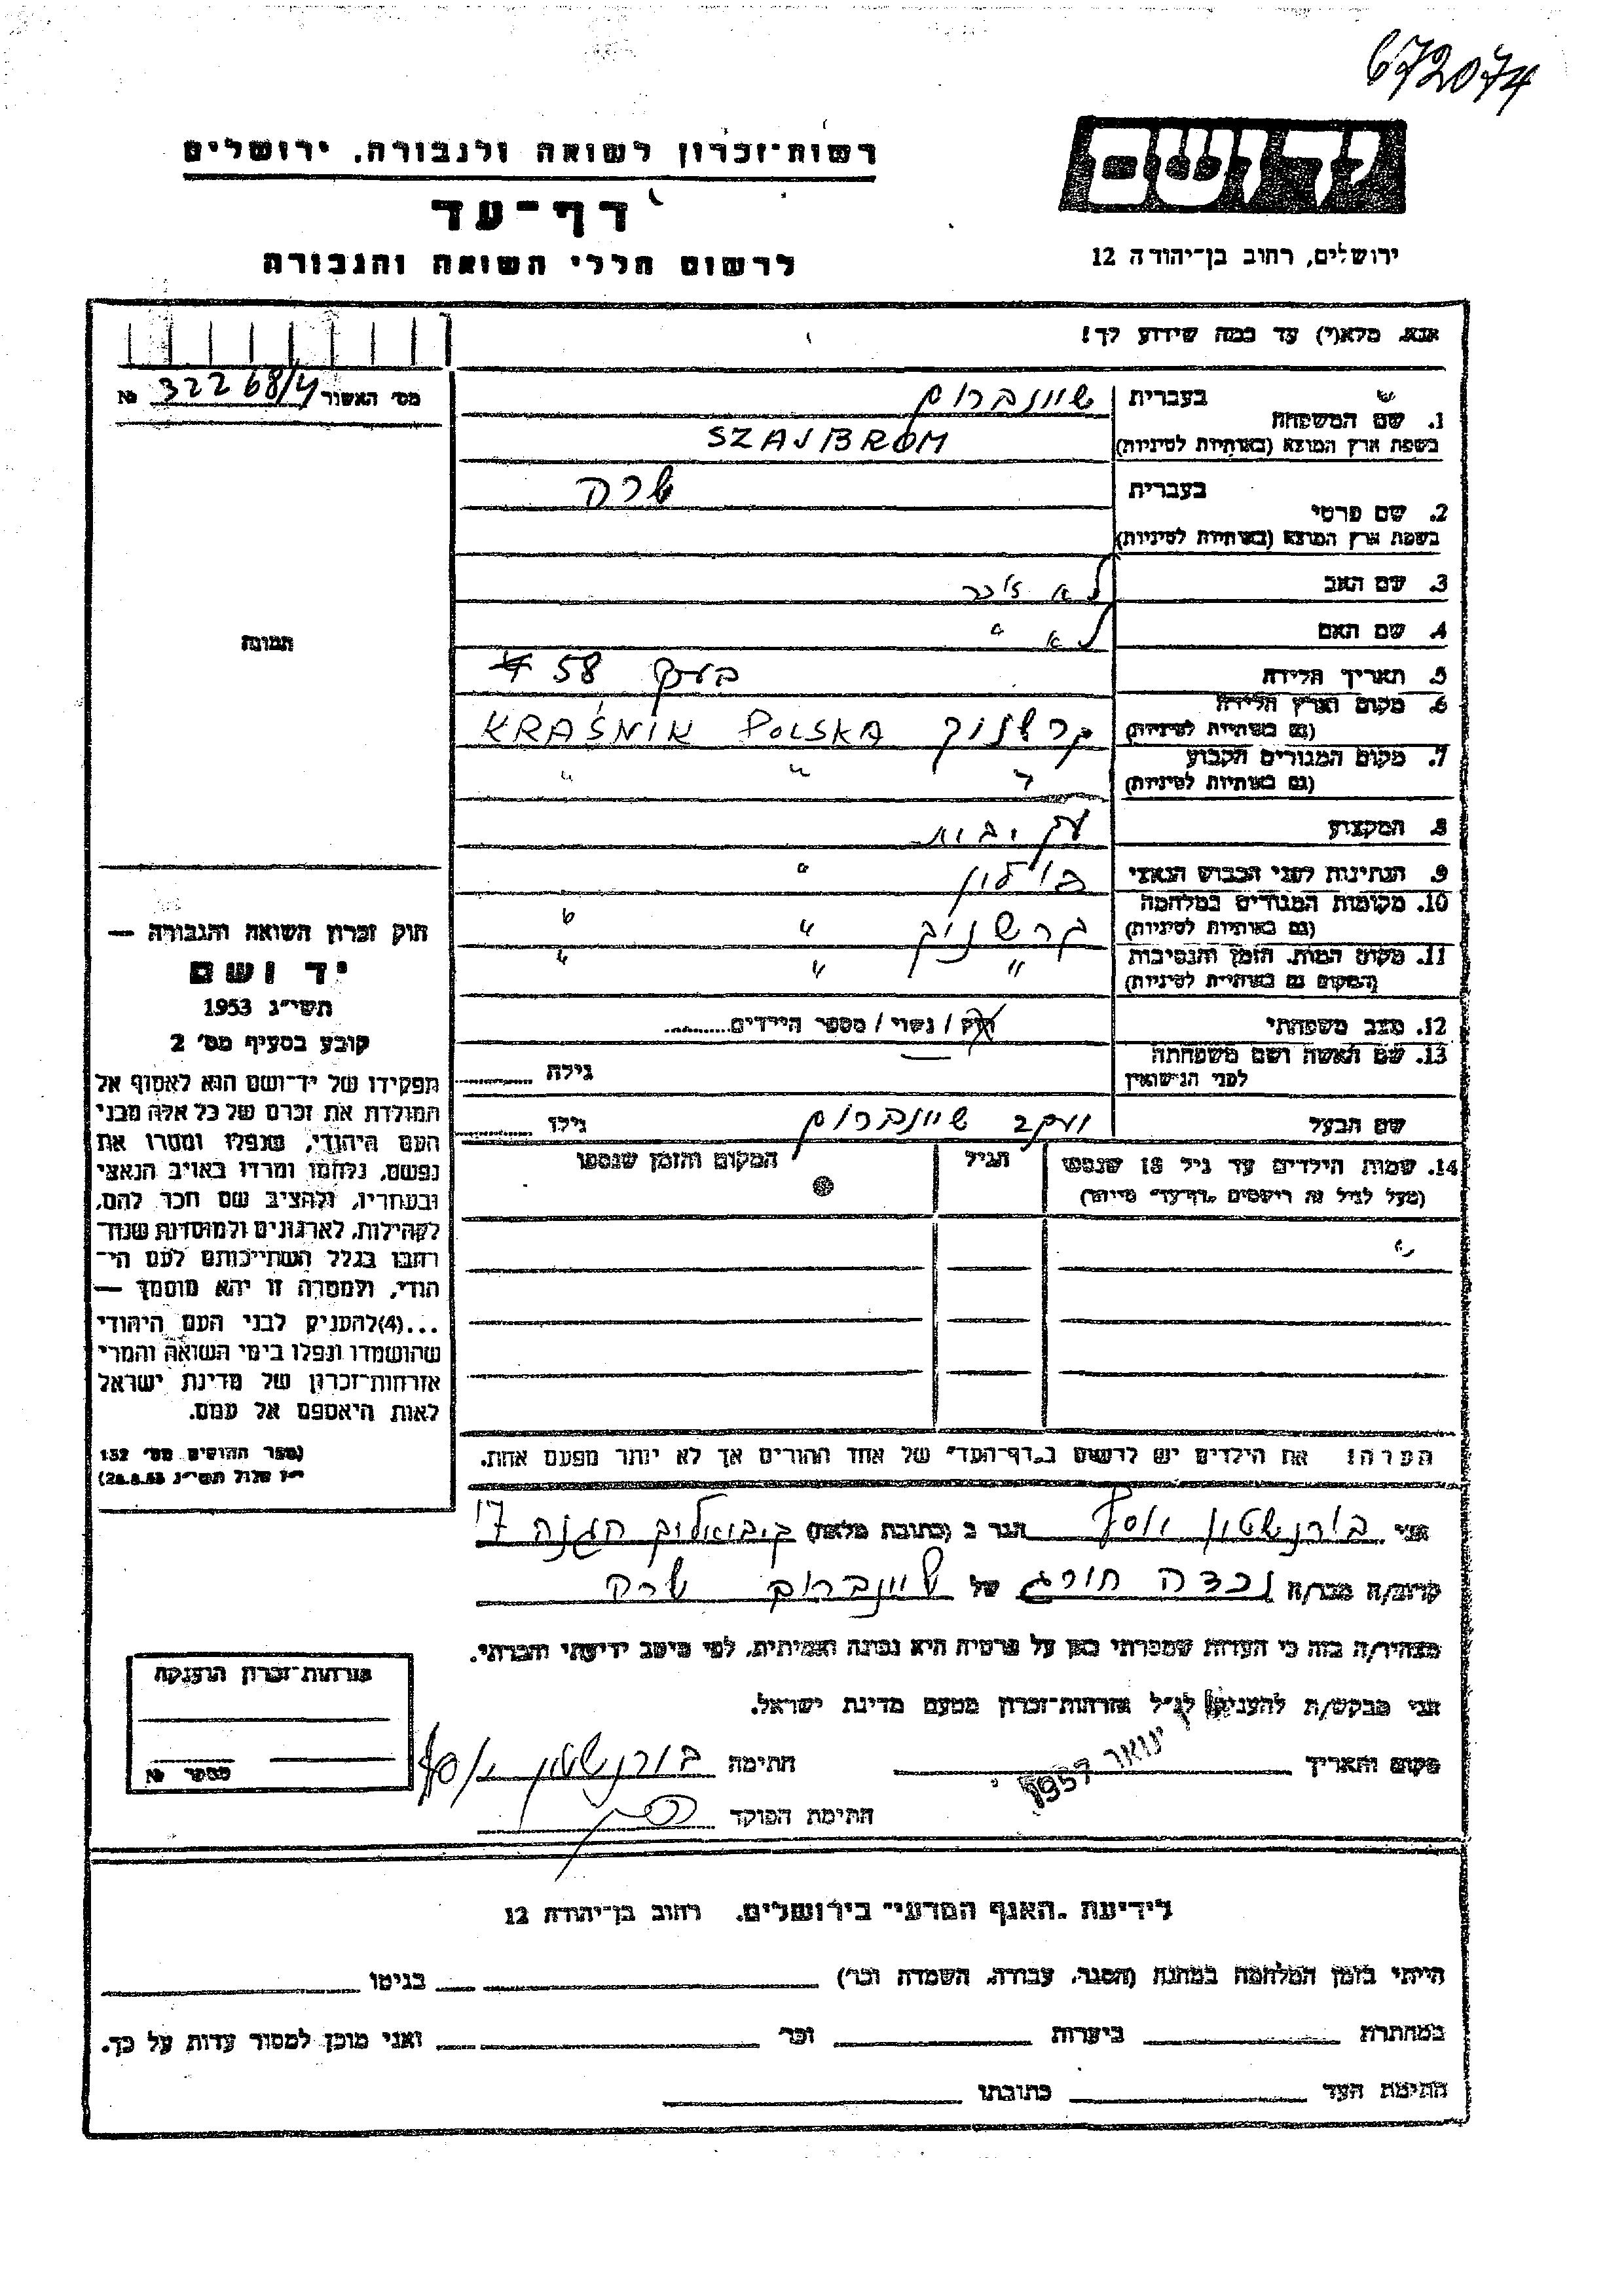 672074
יד ושם
ירושלים, רחוב בן-יהודה 12
רשות-זכרון לשואה ולגבורה, ירושלים
דף-עד
לרשום חללי השואה והגבורה
אנא, מלא(י) עד כמה שידוע לך!
מס' האשור 32268/4 №
תמונה
חוק זכרון השואה והגבורה —
יד ושם
תשי"ג 1953
קובע בסעיף מס' 2
תפקידו של יד-ושם הוא לאסוף אל
המולדת את זכרם של כל אלה מבני
העם היהודי, שנפלו ומסרו את
נפשם, נלחמו ומרדו באויב הנאצי
ובעוזריו, ולהציב שם וזכר להם,
לקהילות, לארגונים ולמוסדות שנח-
רבו בגלל השתייכותם לעם הי-
הודי, ולמטרה זו יהא מוסמך —
...(4)להעניק לבני העם היהודי
שהושמדו ונפלו בימי השואה והמרי
אזרחות-זכרון של מדינת ישראל
לאות היאספם אל עמם.
(ספר החוקים מס' 132
י"ז אלול תשי"ג 28.8.53)
1. שם המשפחה
בעברית שיינברום
בשפת ארץ המוצא (באותיות לטיניות) SZAJBROM
2. שם פרטי
בעברית שרה
בשפת ארץ המוצא (באותיות לטיניות)
3. שם האב לא זוכר
4. שם האם לא "
5. תאריך הלידה בערך 58
6. מקום וארץ הלידה
(גם באותיות לטיניות) קרשניק KRAŚNIK POLSKA
7. מקום המגורים הקבוע
(גם באותיות לטיניות) " " "
8. המקצוע עק יבית
9. הנתינות לפני הכבוש הנאצי פולין "
10. מקומות המגורים במלחמה
(גם באותיות לטיניות) קרשניק " "
11. מקום המות, הזמן והנסיבות
(המקום גם באותיות לטיניות) " " "
12. מצב משפחתי רוק / נשוי / מספר הילדים
13. שם האשה ושם משפחתה
לפני הנישואין
גילה
שם הבעל יעקב שיינברום גילו
14. שמות הילדים עד גיל 18 שנספו
(מעל לגיל זה רושמים "דף-עד" מיוחד)
הגיל
המקום והזמן שנספו
הערה: את הילדים יש לרשום ב"דף-העד" של אחד ההורים אך לא יותר מפעם אחת.
אני בורנשטיין יוסף הגר ב (כתובת מלאה) ק.ביאליק הגנה 17
קרוב/ה מכר/ה נכדה חורג של שיינברום שרה
מצהיר/ה בזה כי העדות שמסרתי כאן על פרטיה היא נכונה ואמיתית, לפי מיטב ידיעתי והכרתי.
אני מבקש/ת להעניק לנ"ל אזרחות-זכרון מטעם מדינת ישראל.
מקום ותאריך ינואר 1957 חתימה בורנשטיין יוסף
חתימת הפוקד
אזרחות-זכרון הוענקה
מספר №
לידיעת "האגף המדעי" בירושלים, רחוב בן-יהודה 12
הייתי בזמן המלחמה במחנה (הסגר, עבודה, השמדה וכו') בגיטו
במחתרת ביערות וכו' ואני מוכן למסור עדות על כך.
חתימת העד כתובתו